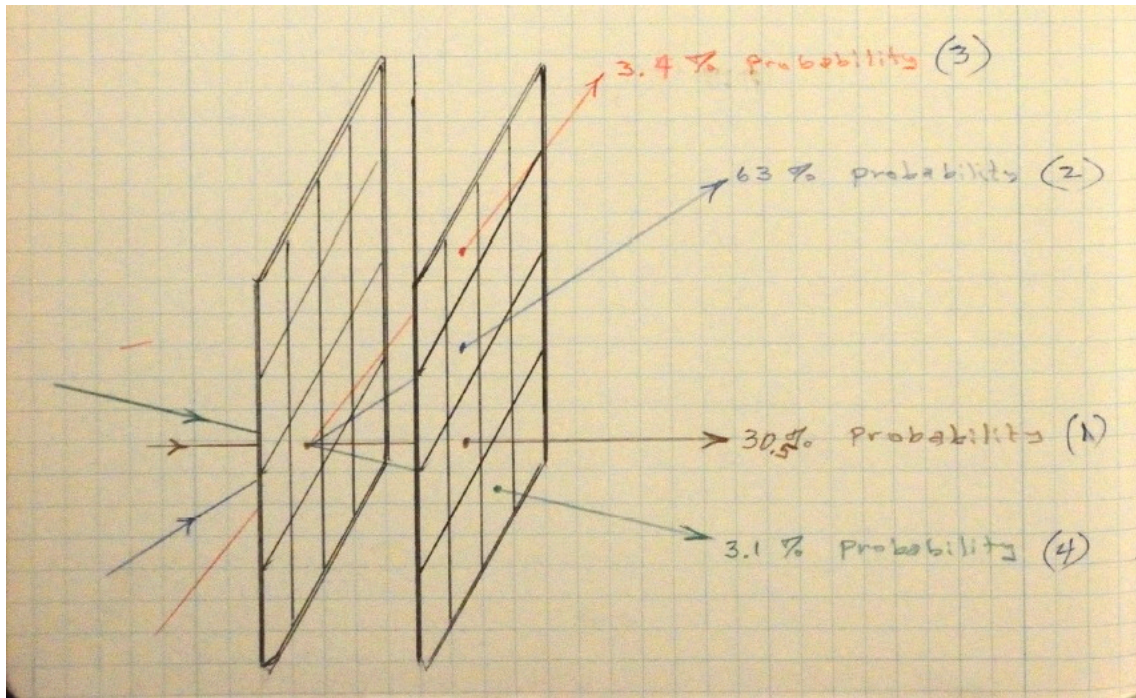 3.4 % probability (3)
63 % probability (2)
30.5 % probability (1)
3.1 % probability (4)